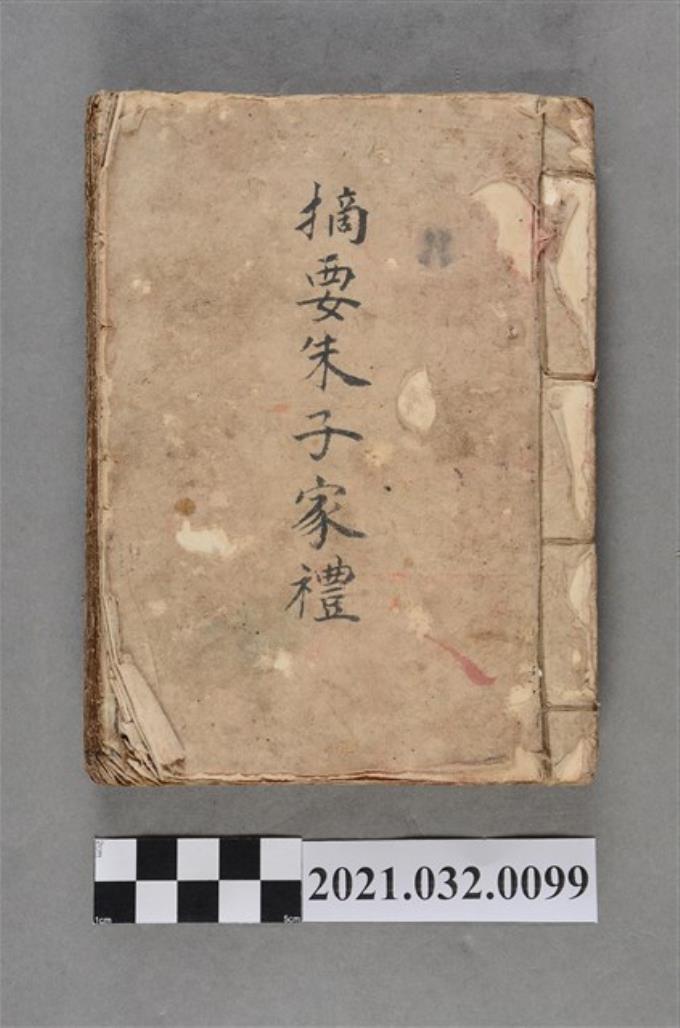 摘要朱子家禮
2021.032.0099
2cm
1cm
5cm